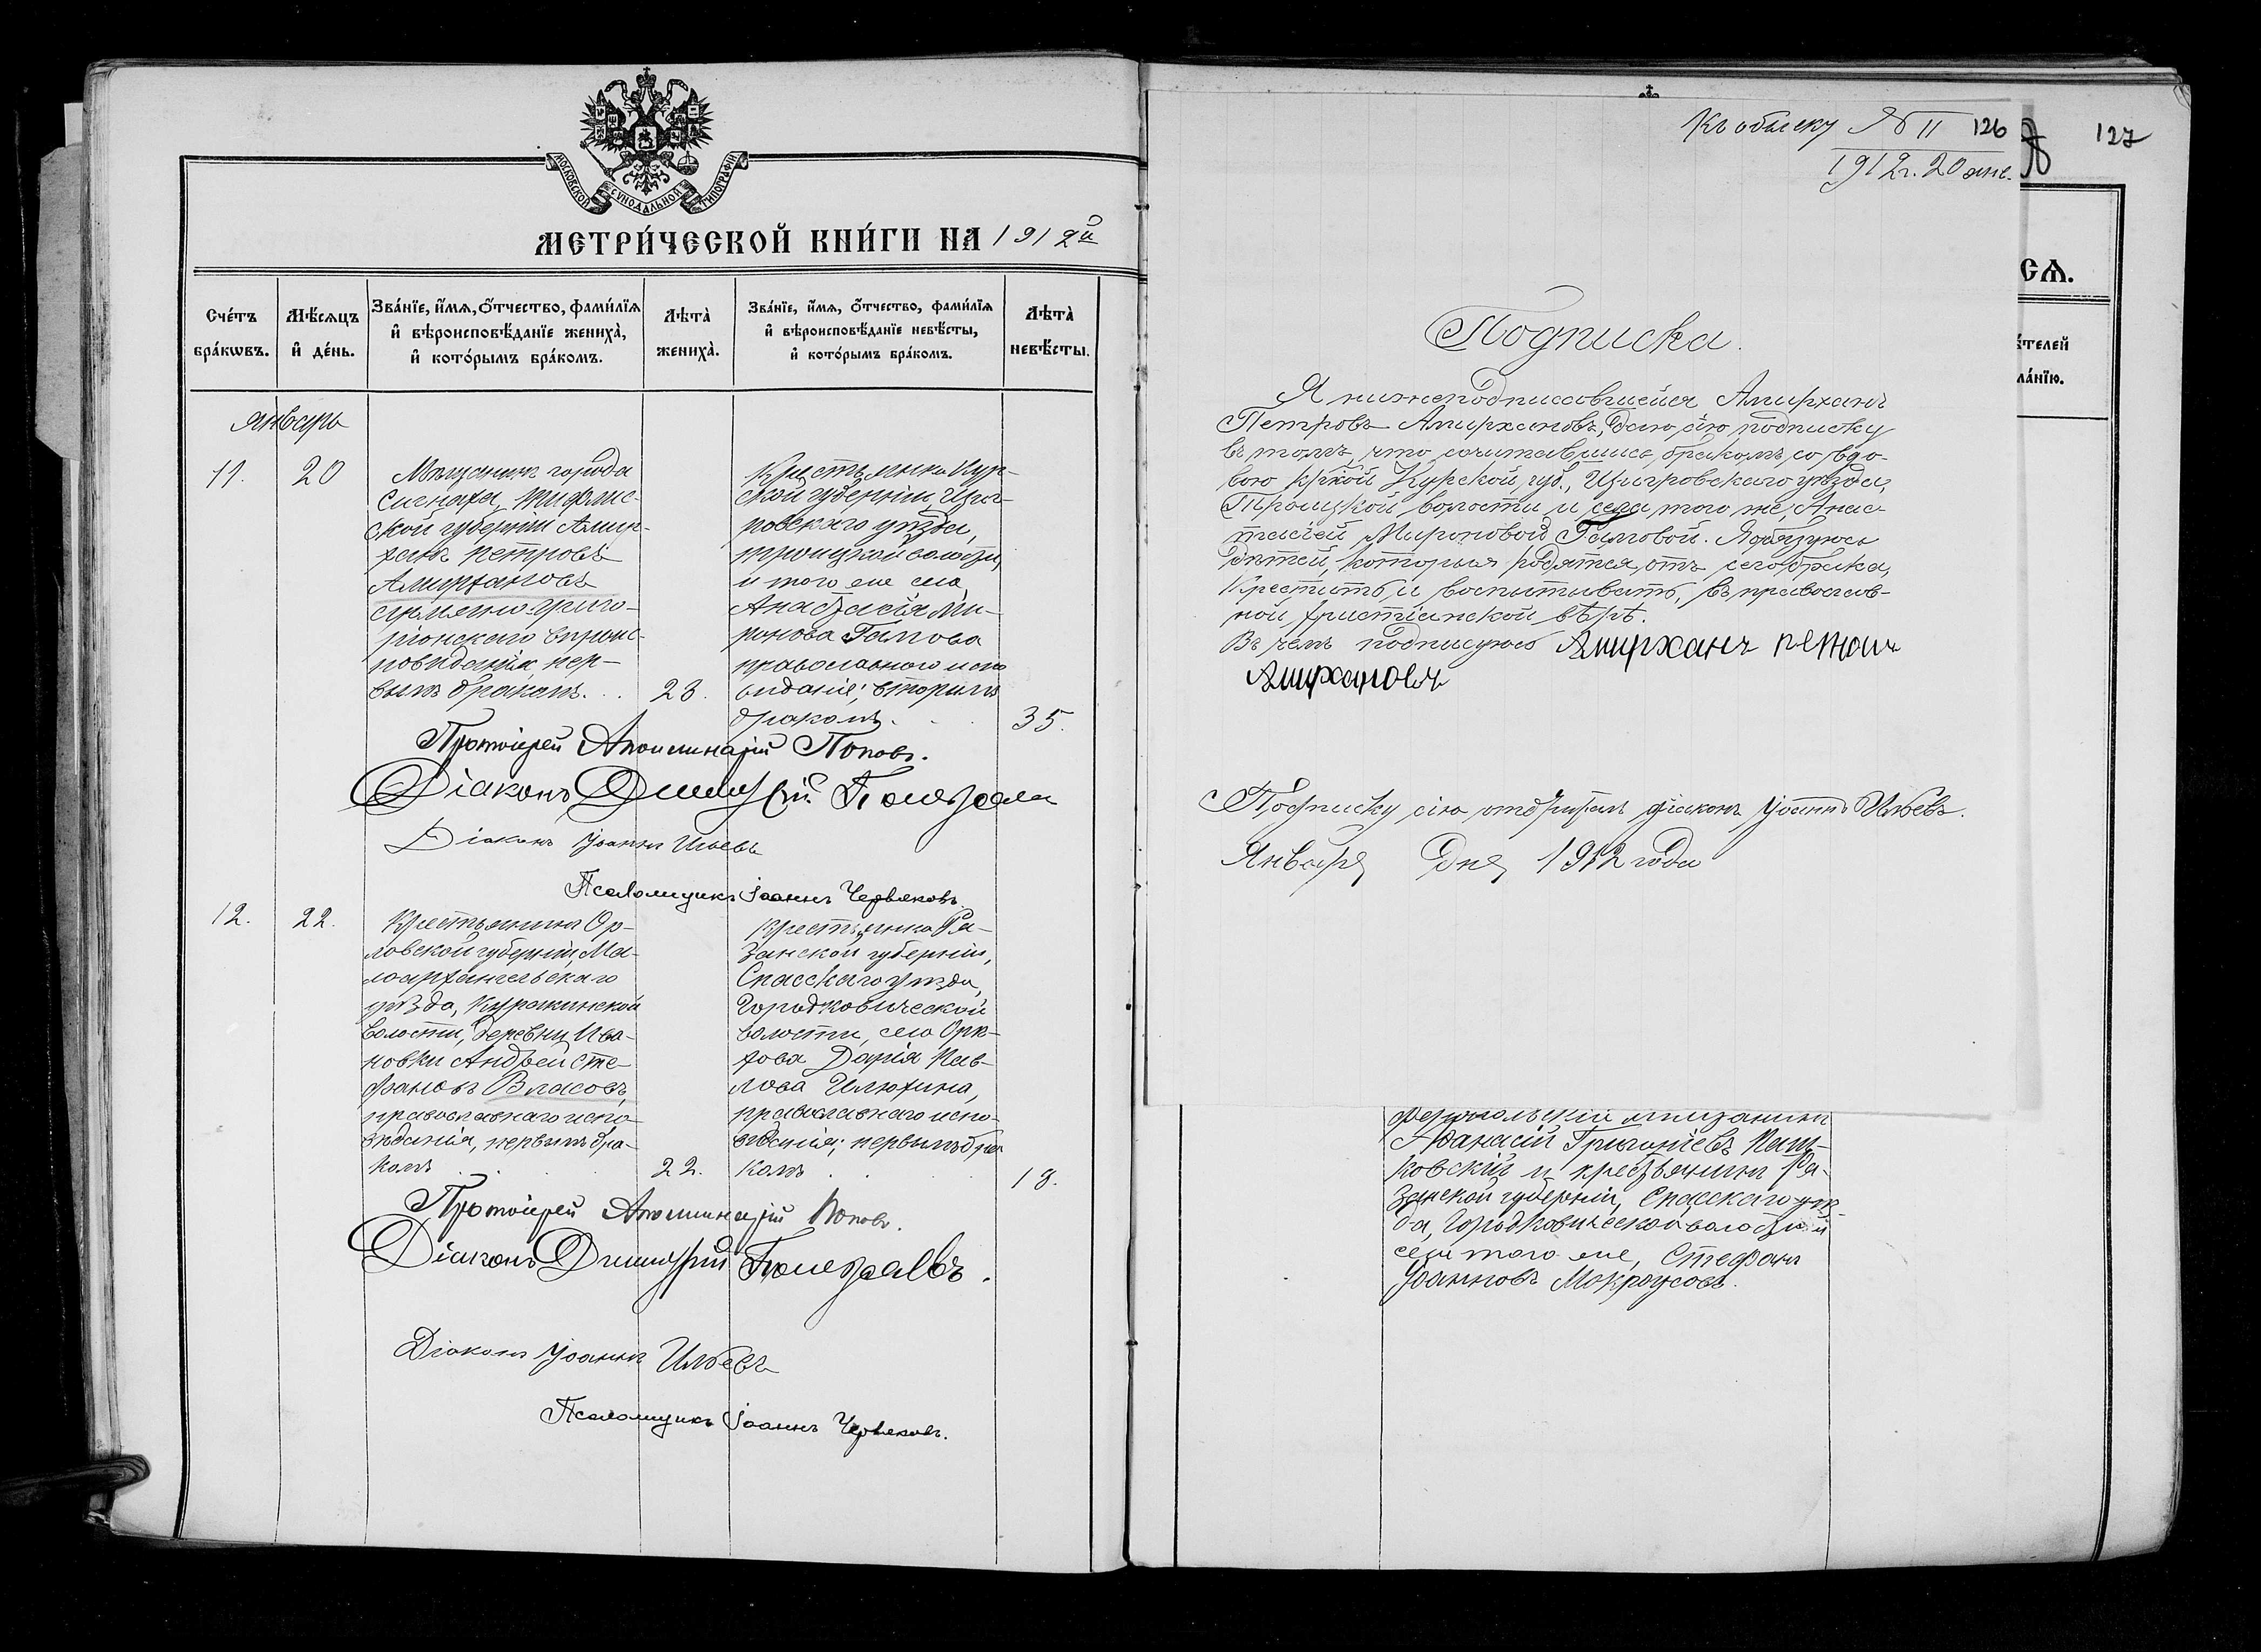 МОСКОВСКОЙ СѴНОДАЛЬНОЙ ТИПОГРАФІИ
МЕТРИ́ЧЕСКОЙ КНИ́ГИ НА 1912й
Сче́тъ бра́кѡвъ.
Мѣ́сяцъ и҆ де́нь.
Зва́нїе, и҆́мѧ, ѻ҆́тчество, фами́лїѧ
и҆ вѣроисповѣ́данїе жениха̀,
и҆ кото́рымъ бра́комъ.
Лѣта̀ жениха̀.
Зва́нїе, и҆́мѧ, ѻ҆́тчество, фами́лїѧ
и҆ вѣроисповѣ́данїе невѣ́сты,
и҆ кото́рымъ бра́комъ.
Лѣта̀ невѣ́сты.
январь
11.
20
Мѣщанинъ города
Сигнаха, Тифлис-
ской губерніи Амир-
ханъ Петровъ
Амирхановъ
армяно-григо-
ріонскаго вѣроис-
повѣданія, пер-
вымъ бракомъ. . .
23.
Крестьянка Кур-
ской губерніи, Щиг-
ровскаго уѣзда,
Троицкой волости,
и того же села
Анастасія Ми-
ронова Гапова
православнаго испо
вѣданія; вторымъ
бракомъ. . .
35.
Протоіерей Аполлинарій Попов.
Діаконъ Димитрій
Діаконъ Іоаннъ Ильевъ
Псаломщикъ Іоаннъ Червяковъ.
12.
22.
Крестьянинъ Ор-
ловской губерніи, Ма-
лоархангельскаго
уѣзда, Куракинской
волости, деревни Ива-
новки Андрей Сте-
фановъ Власовъ,
православнаго испо-
вѣданія, первымъ бра-
комъ . . .
22.
Крестьянка Ря-
занской губерніи,
Спасскаго уѣзда,
Городковической
волости, села Орѣ-
хова Дарія Пав-
лова Илюхина,
православнаго испо-
вѣданія; первымъ бра
комъ . . .
19.
Протоіерей Аполлинарій Попов.
Діаконъ Димитрій
Діаконъ Іоаннъ Ильевъ
Псаломщикъ Іоаннъ Червяковъ.
Къ обыску № 11 126
1912г. 20 янв.
127
Подписка.
Я нижеподписавшійся Амирханъ
Петровъ Амирхановъ, даю сію подписку
въ томъ, что сочитавшись бракомъ со вдо-
вою кр-кой Курской губ., Щигровскаго уѣзда,
Троицкой волости и села того же, Анас-
тасіей Мироновой Гаповой. Я обязуюсь
дѣтей, которыя родятся отъ сего брака,
Крестить и воспитывать, въ православ-
ной христіанской вѣрѣ.
Въ чемъ подписуюсь Амирханъ
Амирхановъ
Подписку сію отобралъ діаконъ Іоаннъ Ильевъ.
Января дня 1912 года
СѦ.
ѣ́телей
ла́нїю.
мѣщанинъ
Афанасій Григоріевъ
ковскій и крестьянинъ Ря-
занской губерніи, Спасскаго уѣз-
да, Городковической волости и
села того же, Стефанъ
Іоанновъ Мокроусовъ.